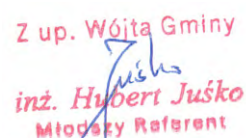 Z up. Wójta Gminy
Juśko
inż. Hubert Juśko
Młodszy Referent